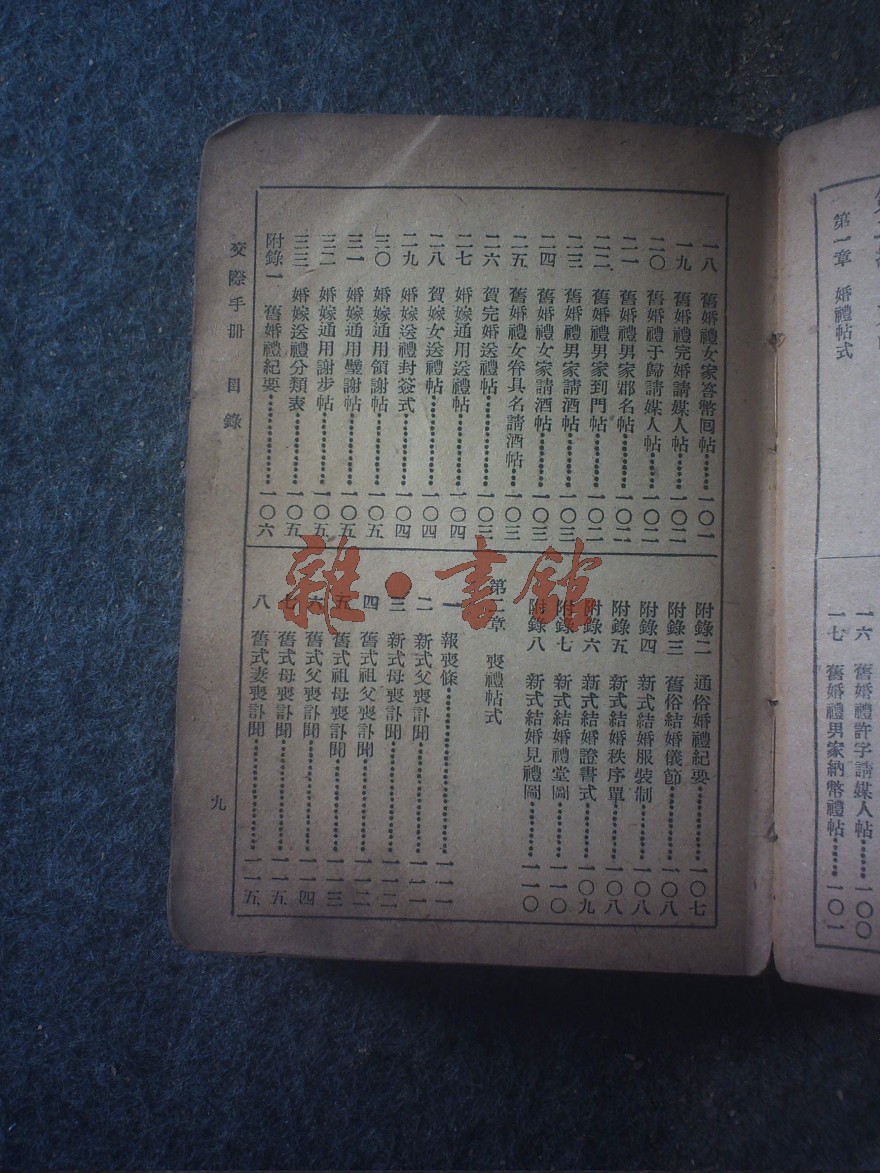 第一章　婚禮帖式
一六　舊婚禮許字請媒人帖……一〇〇
一七　舊婚禮男家納幣禮帖……一〇一
一八　舊婚禮女家答幣回帖……一〇一
一九　舊婚禮完婚請媒人帖……一〇二
二〇　舊婚禮于歸請媒人帖……一〇二
二一　舊婚禮男家郡名帖……一〇二
二二　舊婚禮男家到門帖……一〇二
二三　舊婚禮男家請酒帖……一〇三
二四　舊婚禮女家請酒帖……一〇三
二五　舊婚禮女眷具名請酒帖……一〇三
二六　賀完婚送禮帖……一〇三
二七　婚嫁通用送禮帖……一〇四
二八　賀嫁女送禮帖……一〇四
二九　婚嫁送禮封簽式……一〇四
三〇　婚嫁通用領謝帖……一〇五
三一　婚嫁通用璧謝帖……一〇五
三二　婚嫁通用謝步帖……一〇五
三三　婚嫁送禮分類表……一〇五
附錄一　舊婚禮紀要……一〇六
附錄二　通俗婚禮紀要……一〇七
附錄三　舊俗結婚儀節……一〇八
附錄四　新式結婚服裝制……一〇八
附錄五　新式結婚秩序單……一〇八
附錄六　新式結婚證書式……一〇九
附錄七　新式結婚禮堂圖……一一〇
附錄八　新式結婚見禮圖……一一〇
第二章　喪禮帖式
一　報喪條……一一一
二　新式父喪訃聞……一一一
三　新式母喪訃聞……一一二
四　舊式祖父喪訃聞……一一二
五　舊式祖母喪訃聞……一一三
六　舊式父喪訃聞……一一四
七　舊式母喪訃聞……一一五
八　舊式妻喪訃聞……一一五
交際手册　目錄
九
雜·書館